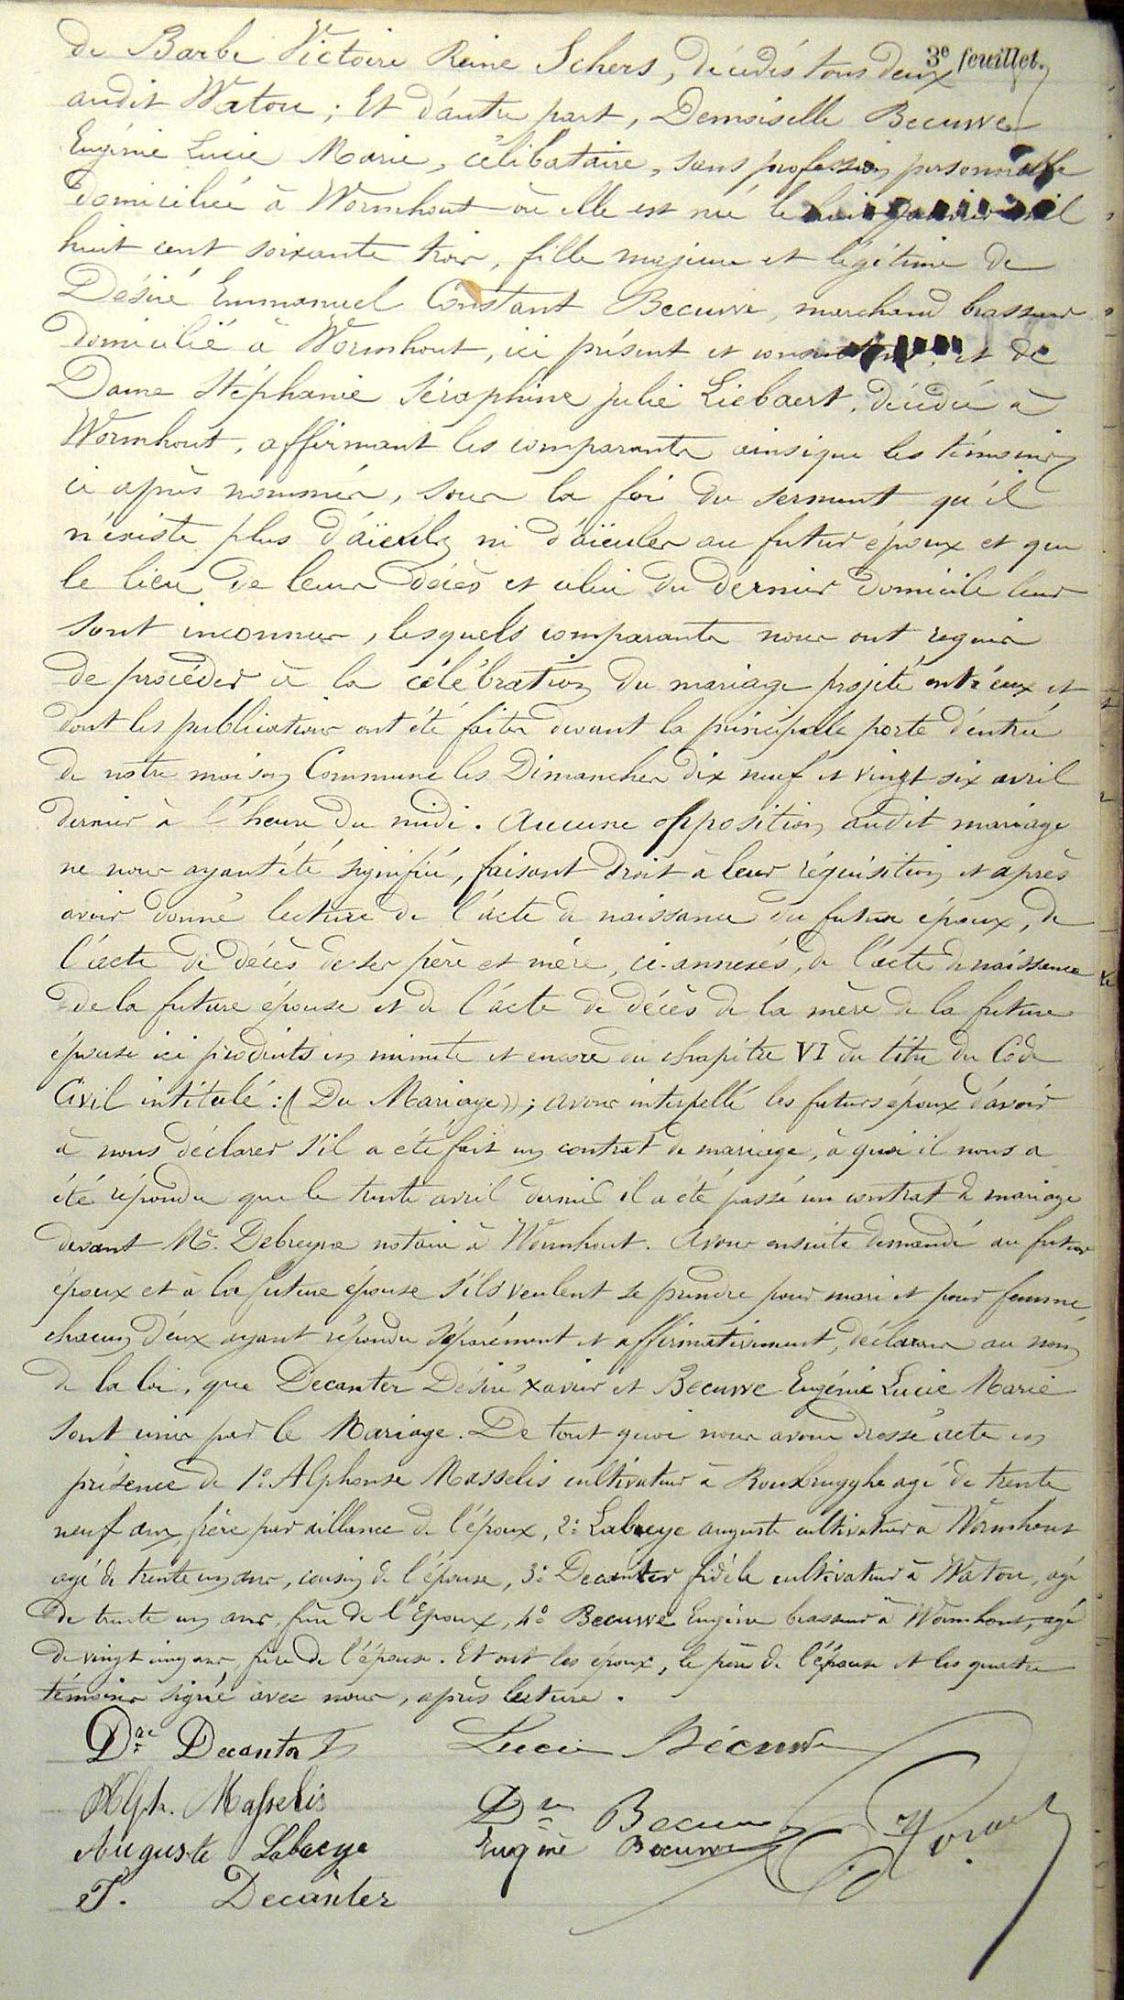 3e feuillet.
de Barbe Victoire Reine Schers, décédés tous deux
audit Watou ; Et d'autre part, Demoiselle Becuwe
Eugénie Lucie Marie, célibataire, sans profession personnelle
domiciliée à Wormhout où elle est née le huit janvier mil
huit cent soixante trois, fille majeure et légitime de
Désiré Emmanuel Constant Becuwe, marchand brasseur
domicilié à Wormhout, ici présent et et de
Dame Stéphanie Séraphine Julie Liebaert, décédée à
Wormhout, affirmant les comparants ainsique les témoins
ci après nommés, sous la foi du serment qu'il
n'existe plus d'aïeuls ni d'aïeules au futur époux et que
le lieu de leur décès et celui du dernier domicile leur
sont inconnus, lesquels comparants nous ont requis
de procéder à la célébration du mariage projeté entr'eux et
dont les publications ont été faites devant la principale porte d'entrée
de notre maison Commune les Dimanches dix neuf et vingt six avril
dernier à l'heure du midi. Aucune opposition audit mariage
ne nous ayant été signifiée, faisant droit à leur réquisition et après
avoir donné lecture de l'acte de naissance du futur époux, de
l'acte de décès de ses père et mère, ci-annexés, de l'acte de naissance
de la future épouse et de l'acte de décès de la mère de la future
épouse ici produits en minute et encore du chapitre VI du titre du Code
Civil intitulé : (Du Mariage)); avons interpellé les futurs époux d'avoir
à nous déclarer s'il a été fait un contrat de mariage, à quoi il nous a
été répondu que le trente avril dernier il a été passé un contrat de mariage
devant Me. Debreyne notaire à Wormhout. Avons ensuite demandé au futur
époux et à la future épouse s'ils veulent se prendre pour mari et pour femme,
chacun d'eux ayant répondu séparément et affirmativement, déclarons au nom
de la loi, que Decanter Désiré Xavier et Becuwe Eugénie Lucie Marie
sont unis par le Mariage. De tout quoi nous avons dressé acte en
présence de 1° Alphonse Masselis cultivateur à Rousbrugghe agé de trente
neuf ans, frère par alliance de l'époux, 2° Labaeye auguste cultivateur à Wormhout
agé de trente un ans, cousin de l'épouse, 3° Decanter fidèle cultivateur à Watou, agé
de trente un ans, frère de l'Epoux, 4° Becuwe Eugène brasseur à Wormhout, agé
de vingt cinq ans, frère de l'épouse. Et ont les époux, le père de l'épouse et les quatre
témoins signé avec nous, après lecture.
Dré Decanter Lucie Bécuwe
Alph. Masselis Dré Becuwe
Auguste Labaeye Eugène Becuwe
F. Decanter